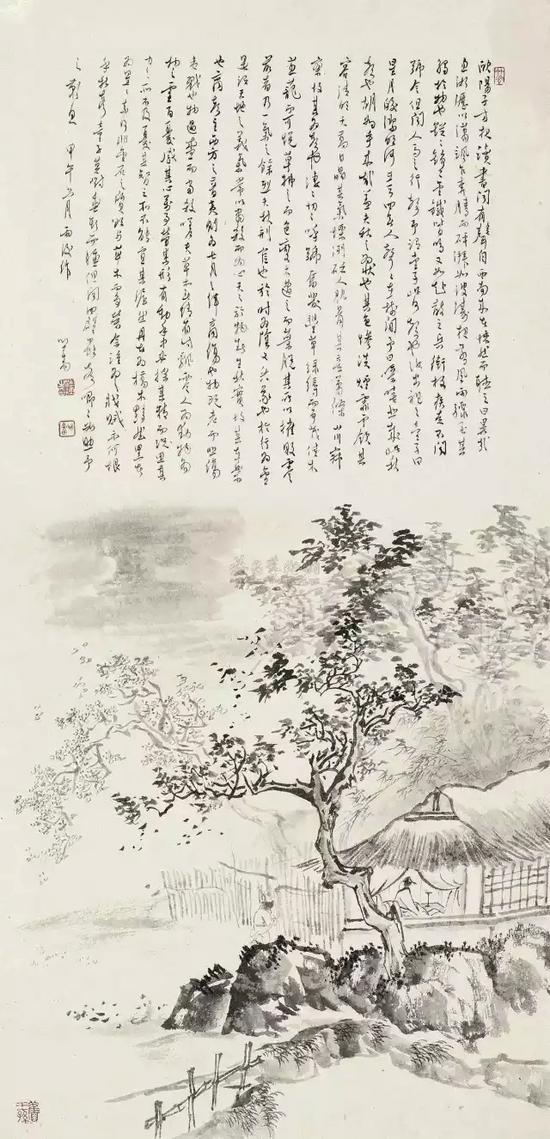 歐陽子方夜讀書聞有聲自西南來者悚然而聽之曰異哉
初淅瀝以瀟颯忽奔騰而砰湃如波濤夜驚風雨驟至其
觸於物也鏦鏦錚錚金鐵皆鳴又如赴敵之兵銜枚疾走不聞
號令但聞人馬之行聲予謂童子此何聲也汝出視之童子曰
星月皎潔明河在天四無人聲聲在樹間予曰噫嘻悲哉此秋
聲也胡為乎來哉蓋夫秋之為狀也其色慘淡煙霏雲歛其
容清明天高日晶其氣慄冽砭人肌骨其意蕭條山川寂
寥故其為聲也淒切切呼號奮發豐草綠縟而爭茂佳木
蔥蘢而可悅草拂之而色變木遭之而葉脫其所以摧敗零
落者乃一氣之餘烈夫秋刑官也於時為陰又兵象也於行為金
是謂天地之義氣常以肅殺而為心天之於物春生秋實故其在樂
也商聲主西方之音夷則為七月之律商傷也物既老而悲傷
夷戮也物過盛而當殺嗟夫草木無情有時飄零人為動物惟
物之靈百憂感其心萬事勞其形有動乎中必搖其精而況思其
力之所不及憂其智之所不能宜其渥然丹者為槁木黟然黑者
為星星奈何非金石之質欲與草木而爭榮念誰為之戕賊亦何恨
乎秋聲童子莫對垂頭而睡但聞四壁蟲聲唧唧如助予
之歎息 甲午 月 作
心畬